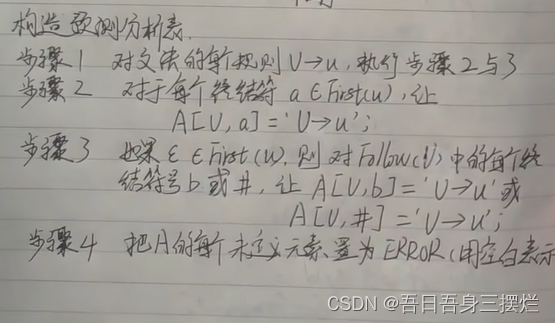 构造预测分析表
步骤1 对文法的每个规则 U→u，执行步骤2与3
步骤2 对于每个终结符 a∈First(u)，让
A[U,a]='U→u';
步骤3 如果 ε∈First(u)，则对Follow(U)中的每个终
结符号b或#，让 A[U,b]='U→u'或
A[U,#]='U→u';
步骤4 把A的每个未定义元素置为ERROR(用空白表示
CSDN @吾日吾身三摆烂